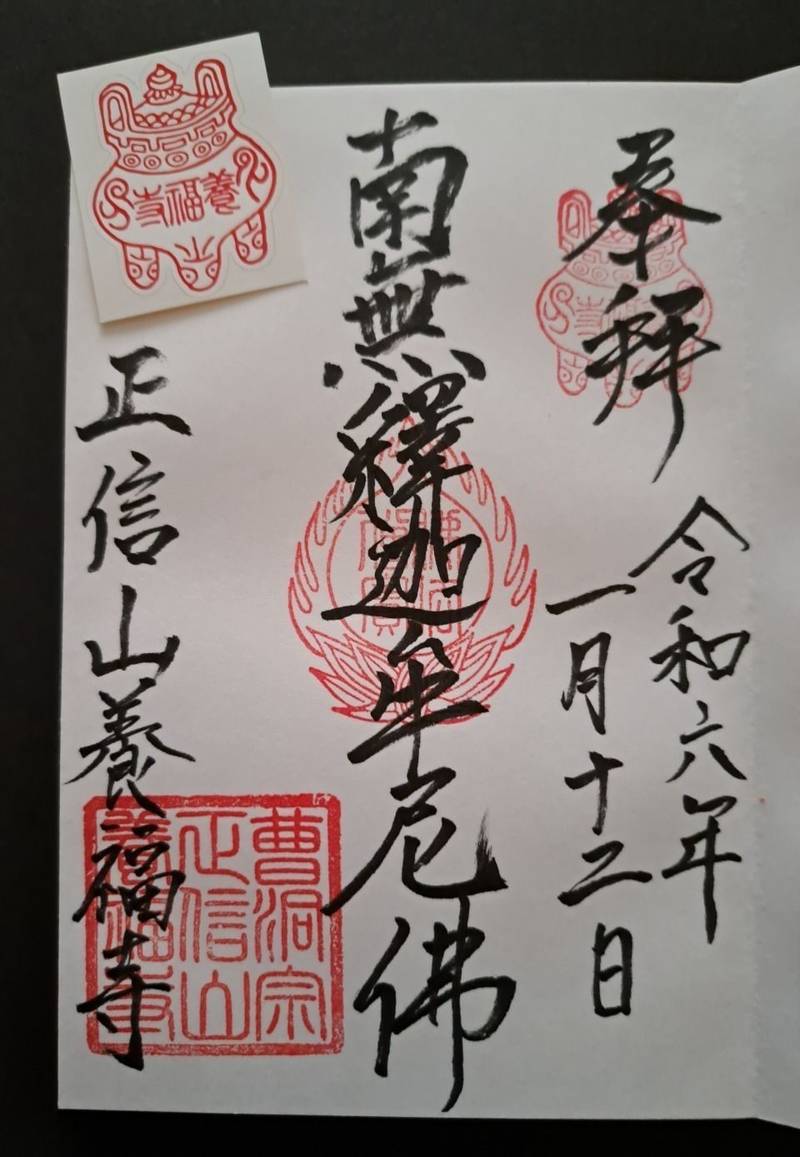 奉拜
令和六年
一月十二日
南無釋迦牟尼佛
正信山養福寺
曹洞宗
正信山
養福寺
養福寺